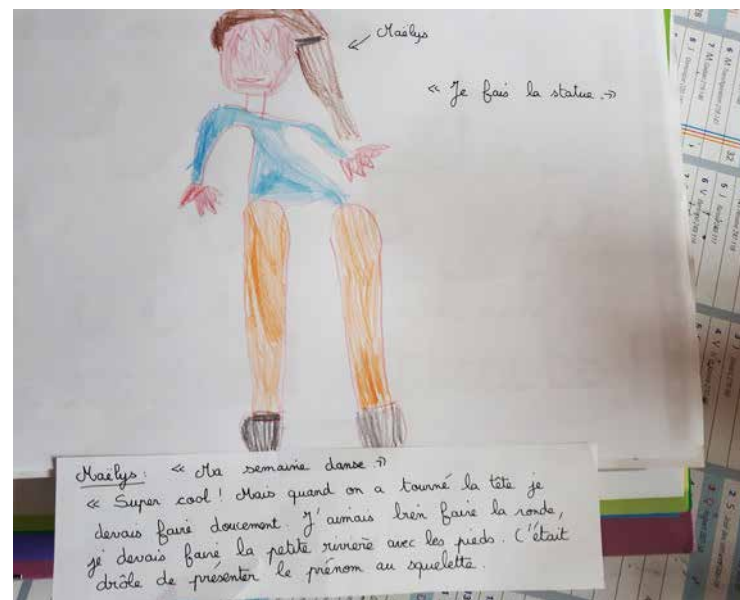 Maëlys
« Je fais la statue. »
Maëlys : « Ma semaine danse »
« Super cool ! Mais quand on a tourné la tête je
devais faire doucement. J'aimais bien faire la ronde,
je devais faire la petite rivière avec les pieds. C'était
drôle de présenter le prénom au squelette.
32